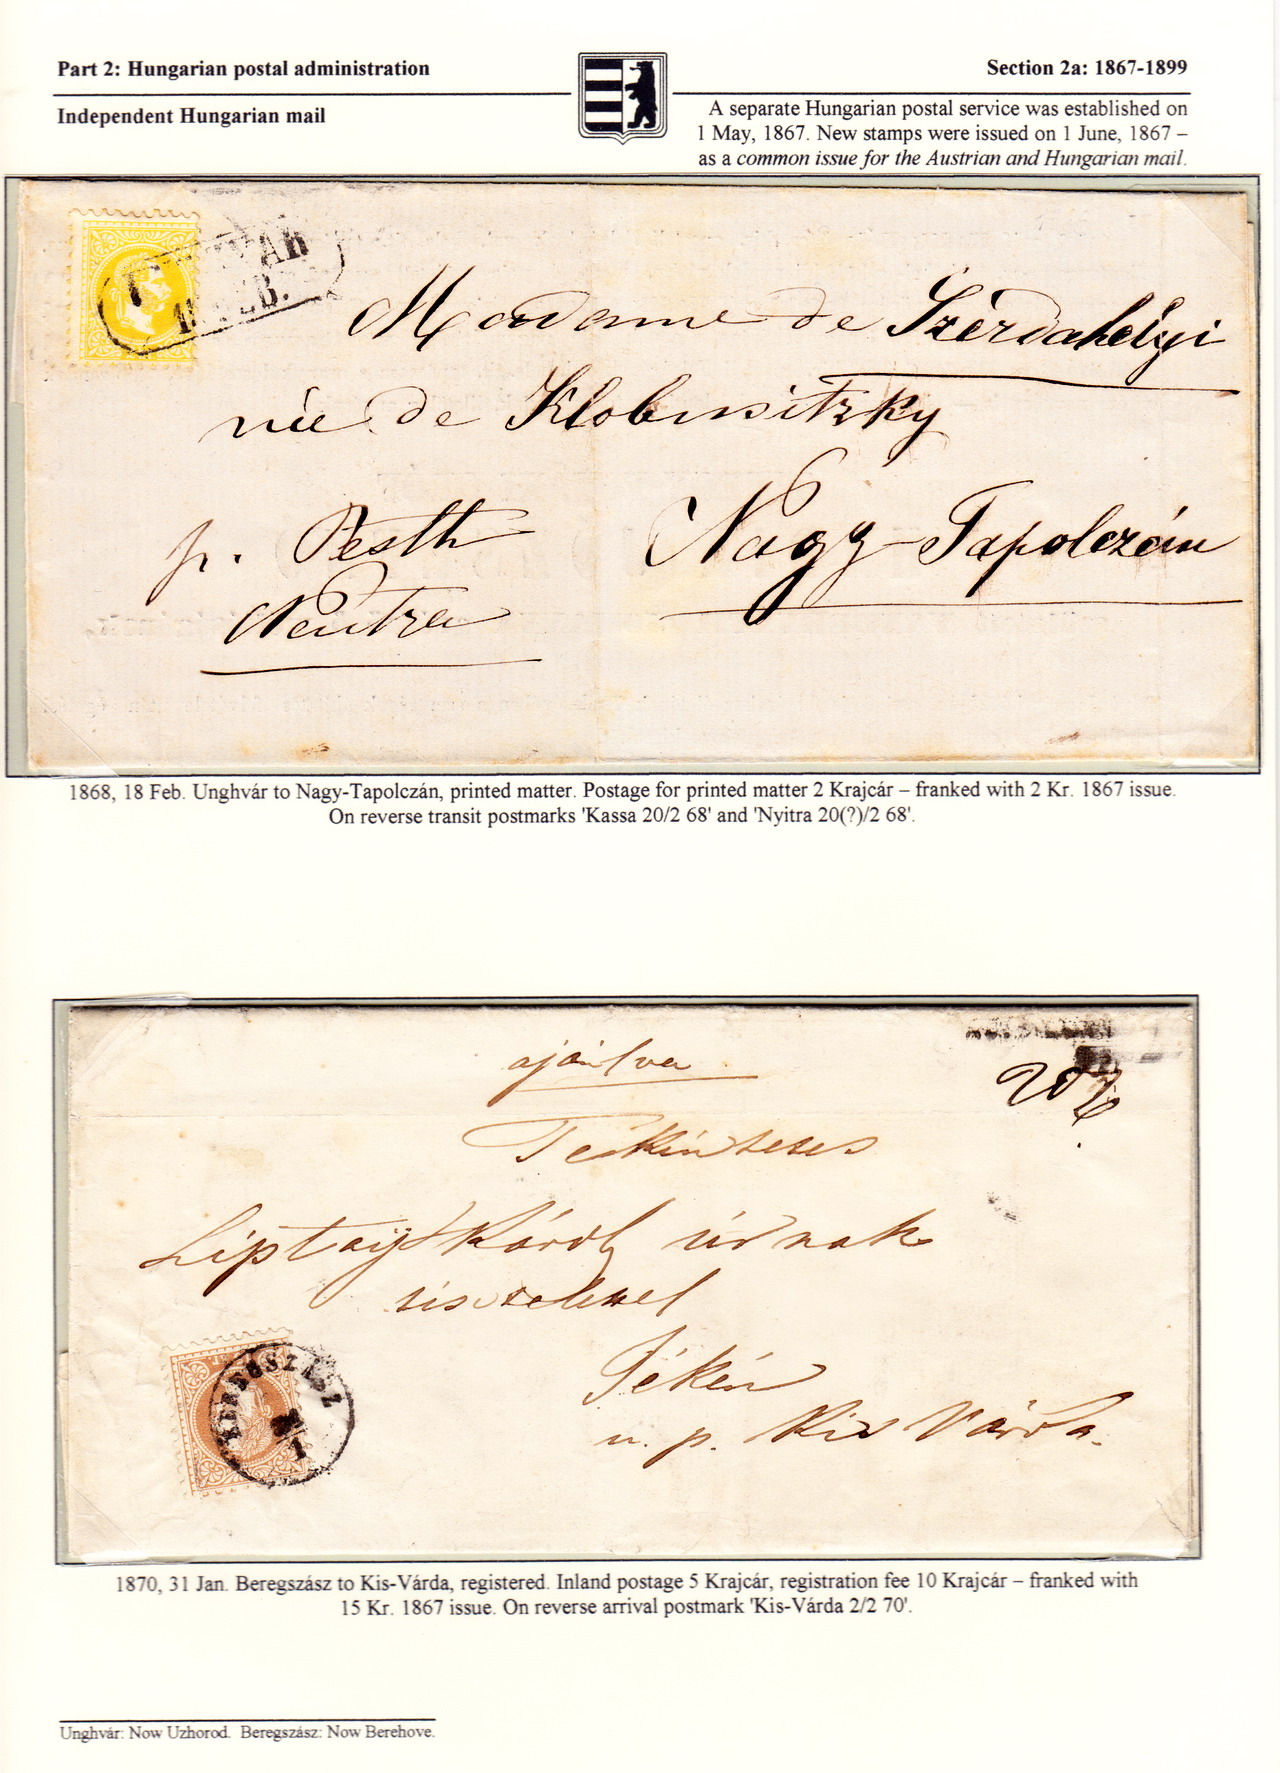 Part 2: Hungarian postal administration
Section 2a: 1867-1899
Independent Hungarian mail
A separate Hungarian postal service was established on
1 May, 1867. New stamps were issued on 1 June, 1867 –
as a common issue for the Austrian and Hungarian mail.
Madame de Szérdahélyi
née de Klobusitzky
p. Pesth
Neutra
Nagy-Tapolczán
1868, 18 Feb. Unghvár to Nagy-Tapolczán, printed matter. Postage for printed matter 2 Krajcár – franked with 2 Kr. 1867 issue.
On reverse transit postmarks 'Kassa 20/2 68' and 'Nyitra 20(?)/2 68'.
ajánlva
Tekintetes
Liptay Károly úrnak
tisztelettel
Tékén
u. p. Kis Várda.
BEREGSZÁSZ
1870, 31 Jan. Beregszász to Kis-Várda, registered. Inland postage 5 Krajcár, registration fee 10 Krajcár – franked with
15 Kr. 1867 issue. On reverse arrival postmark 'Kis-Várda 2/2 70'.
Unghvár: Now Uzhorod. Beregszász: Now Berehove.